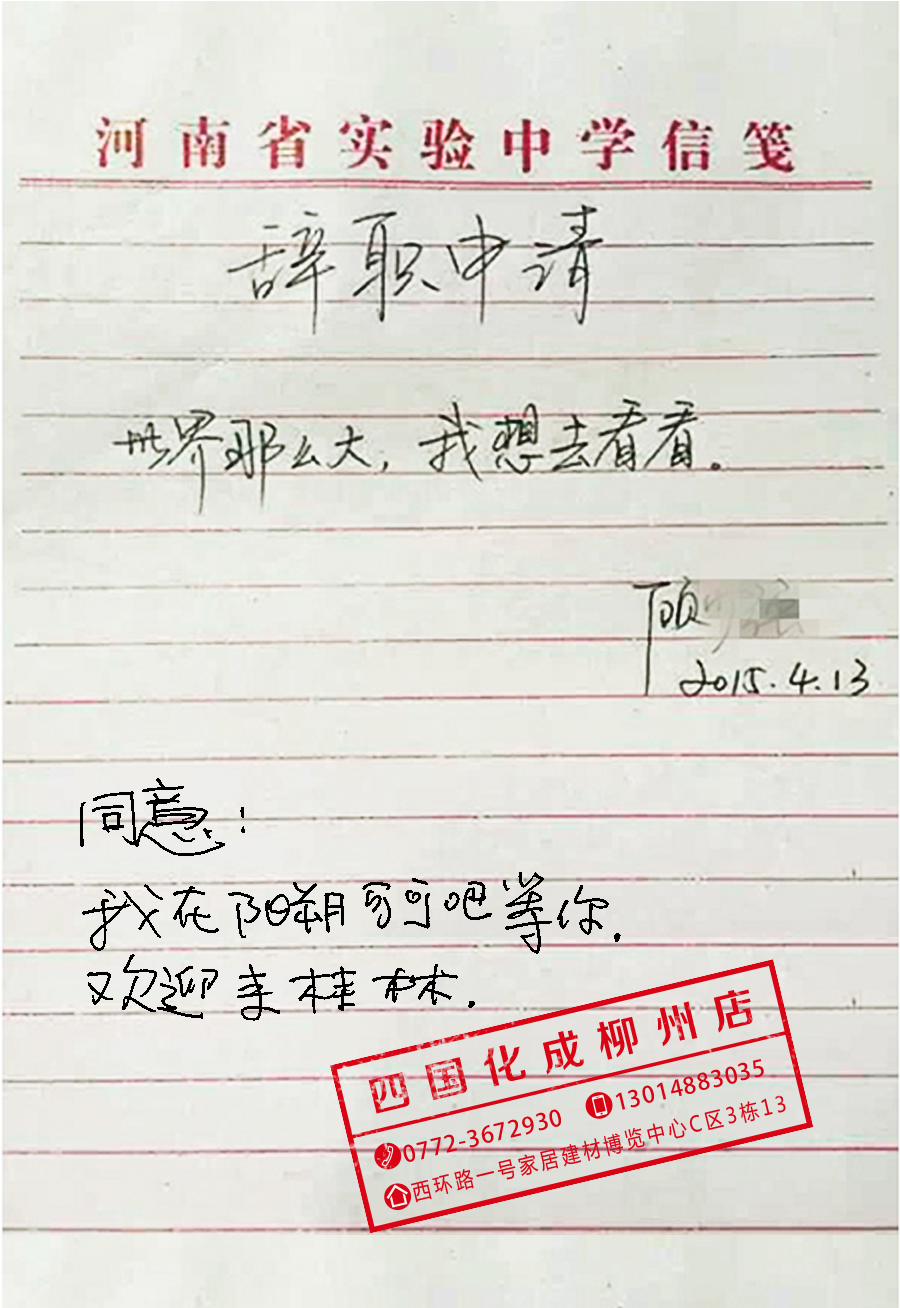 河南省实验中学信笺
辞职申请
世界那么大，我想去看看。
顾
2015.4.13
同意：
我在阳朔可可吧等你.
欢迎来桂林.
四国化成柳州店
0772-3672930 13014883035
西环路一号家居建材博览中心C区3栋13